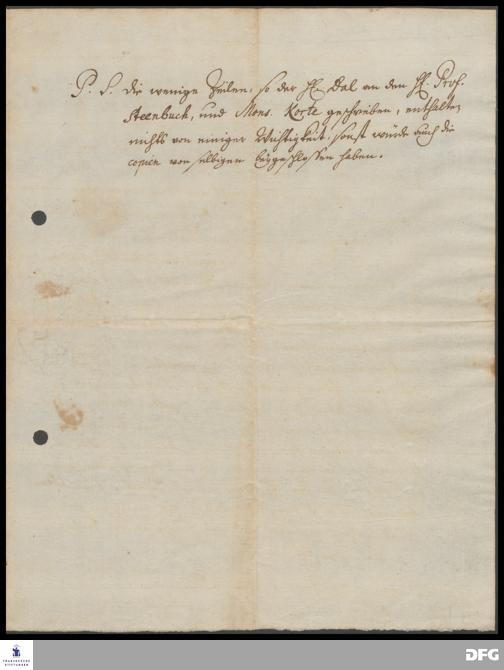 P. S. die wenige Zeilen, so der H. Dal an den H. Prof.
Steenbuch, und Mons. Korte geschrieben, enthalten
nichts von einiger Wichtigkeit, sonst würde auch die
copien von selbigen beygeschlossen haben.
FRANCKESCHE
STIFTUNGEN
DFG